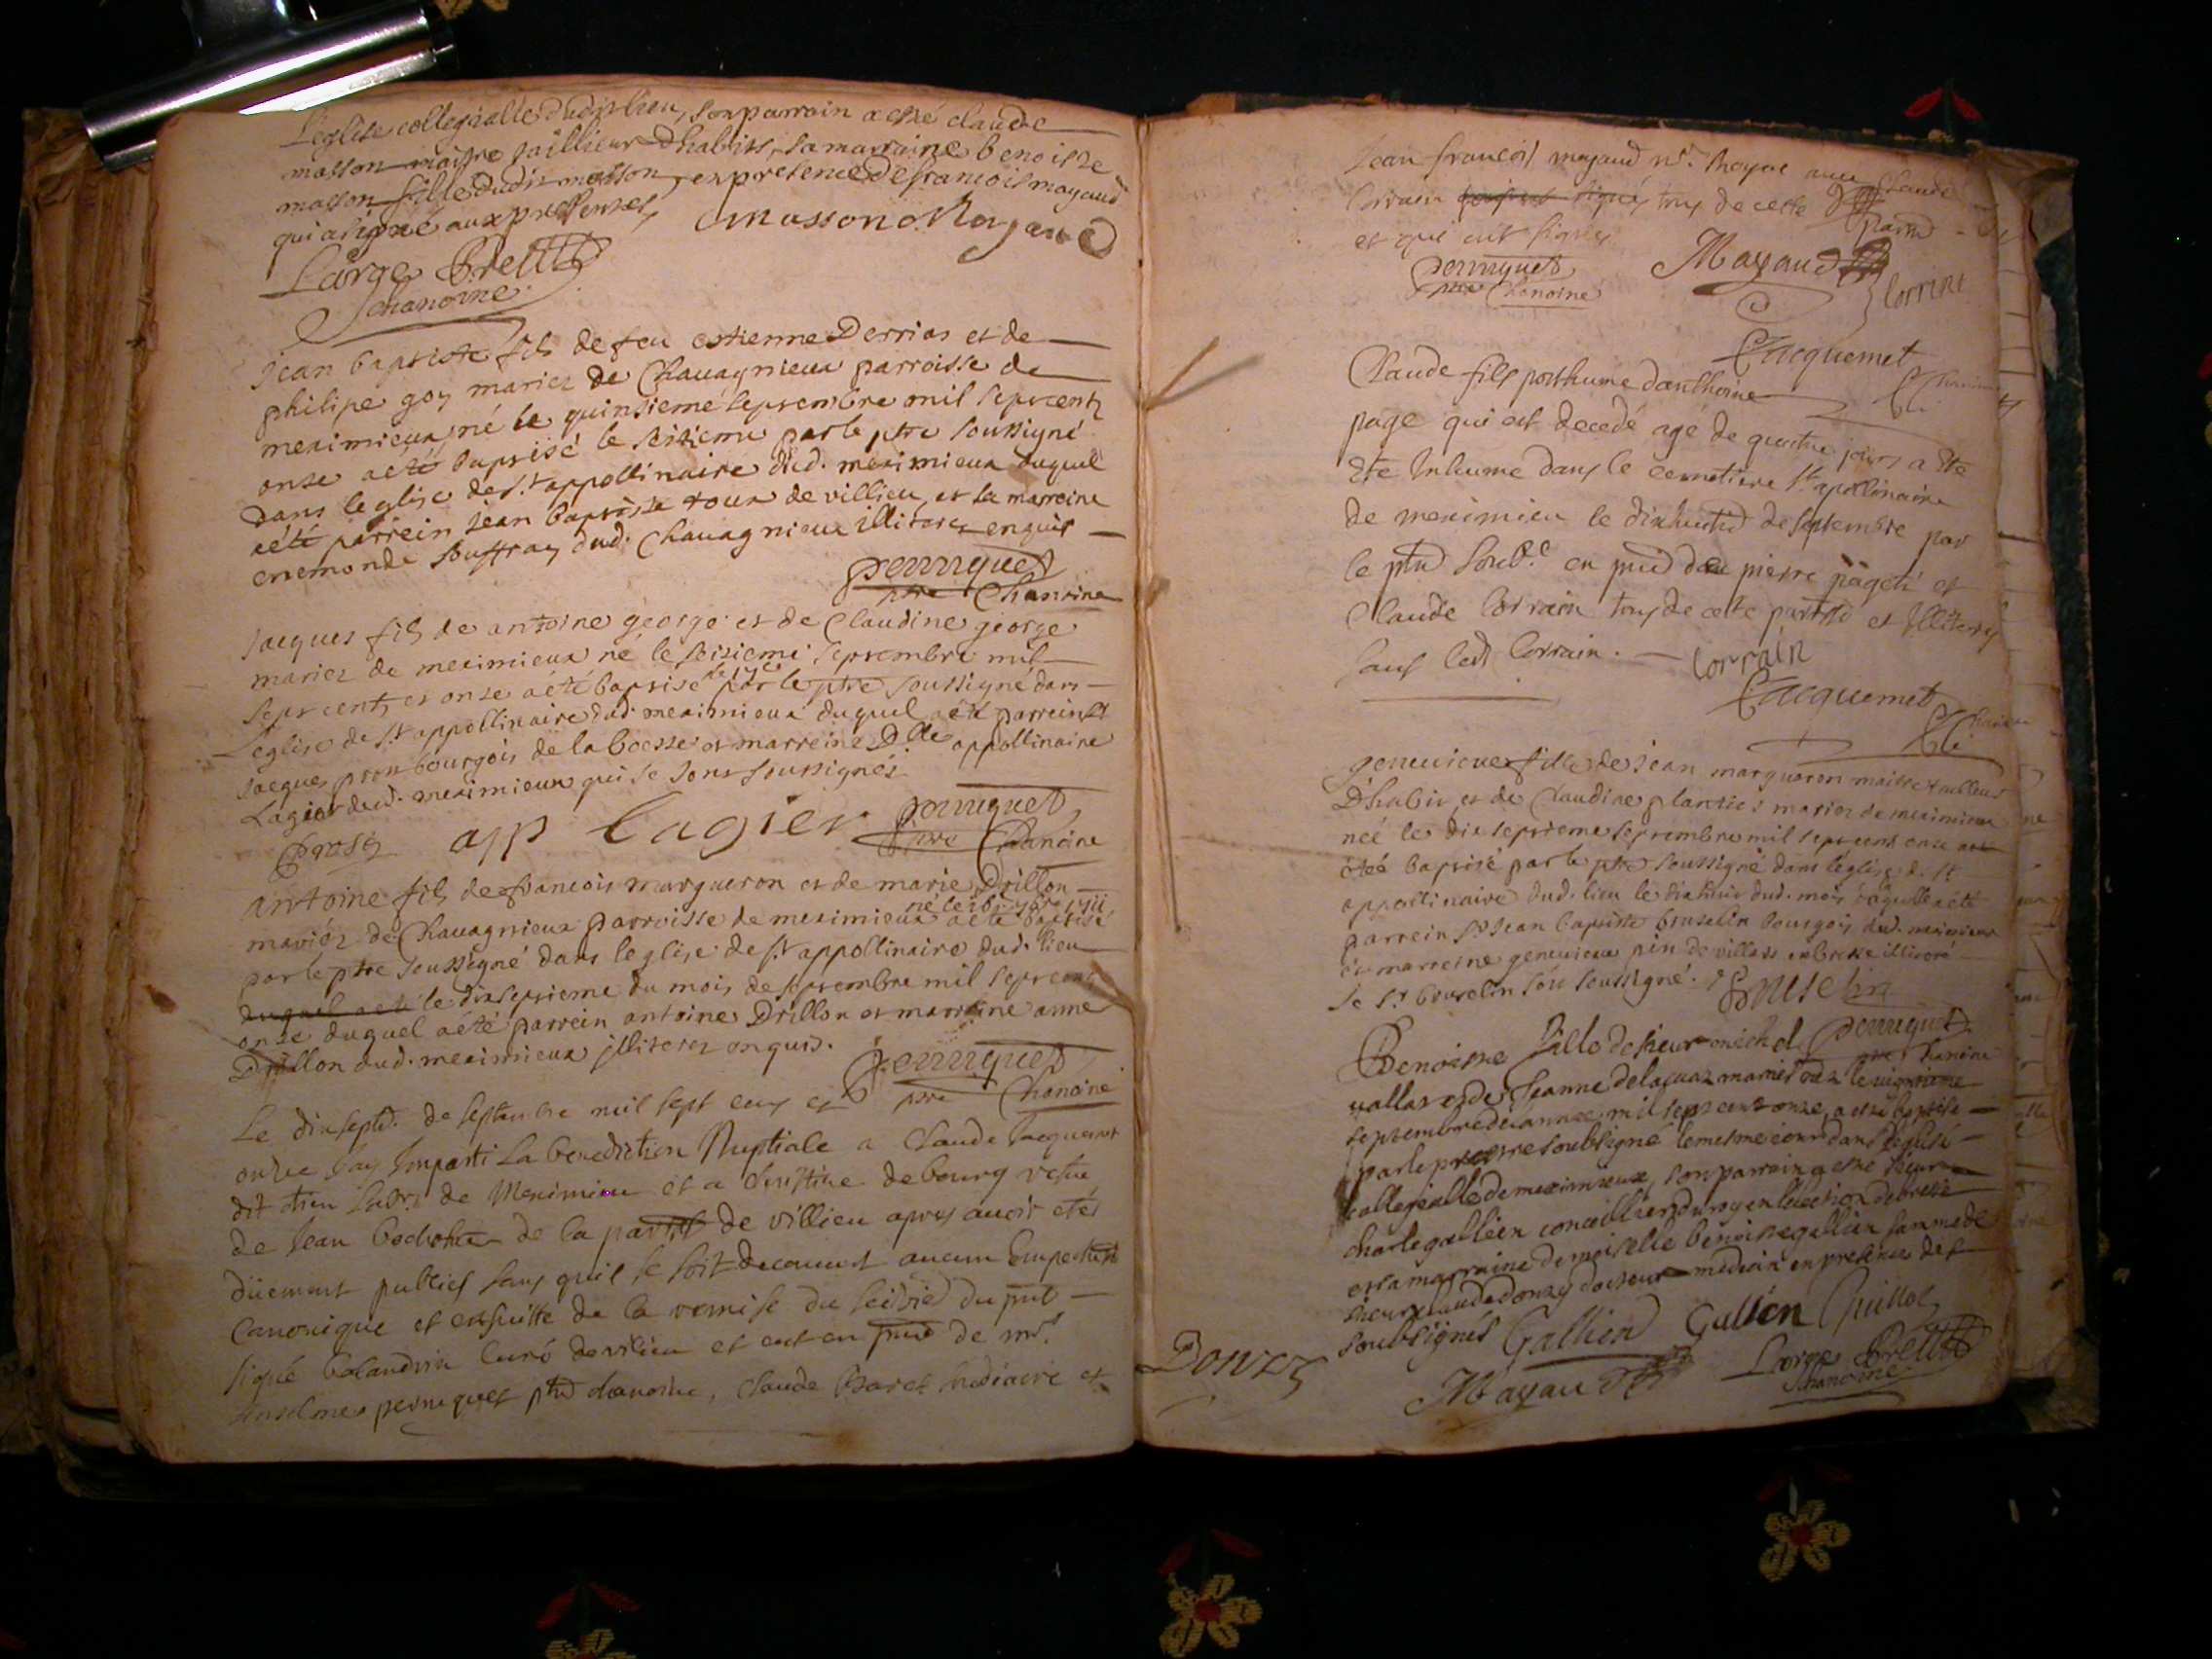 L'église collegialle dudit lieu, son parrain a esté claude
masson maistre taillieur dhabits, sa marraine benoiste
masson fille dudit masson, en presence de francois mayaud
qui a signé aux presentes,
C masson Mayaud
Large
chanoine
Jean baptiste fils de feu estienne Derrias et de
philipe goy mariez de Chauagnieux parroisse de
meximieux né le quinsieme septembre mil septcents
onse a été baptisé le seisieme par le ptre soussigné
dans leglise de St appollinaire dud. meximieux duquel
a été parrein Jean baptiste roux de villieu et la marreine
enemonde souffray dud. Chauagnieux illiteres enquis
perruquet
ptre Chanoine
Jacques fils de antoine george et de Claudine george
mariez de meximieux né le seisieme septembre mil
sept cents et onse a été baptisé par le ptre soussigné dans
Léglise de St appollinaire dud. meximieux duquel a été parrein Sr
Jacques prost bourgois de la boesse et marreine Dlle appollinaire
Lagier dud. meximieux qui se sont soussignés
prost app lagier perruquet
ptre Chanoine
antoine fils de francois margueron et de marie Drillon
mariéz de Chauagnieux parroisse de meximieux a été baptisé
par le ptre soussigné dans leglise de St appollinaire dud. lieu
duquel a été le dixseptieme du mois de septembre mil septcents
onse duquel a été parrein antoine Drillon et marreine anne
Drillon dud. meximieux illiterez enquis.
perruquet
ptre Chanoine
Le dixsept. de septembre mil sept cens et
onze Jay Imparti La benediction Nuptiale a Claude Jacquemet
dit labr. de Meximieu et a Cristine de bourg vefue
de Jean de la parisse de villieu apres auoir etés
düement publies sans quil se soit decouuert aucun Empechemt
Canonique et ensuitte de la remise du seizie du pnt
signé curé de vilieu et ont en pnce de mrs
Anselme perruquet ptre chanoine, Claude et
Jean francois mayaud nre. Royal aueq Claude
Lorrain tous de cette parse
et qui ont signés
perruquet
ptre Chanoine
Mayaud
Lorrint
Jacquemet
Claude fils posthume danthoine
page qui est decedé agé de quatre jours a ete
ete Inhume dans le cemetiere St apollinaire
de meximieu le dixhuitie de septembre par
le ptre soubs. en pnce de pierre paget et
Claude lorrain tous de cete parsse et Illiteres
sauf ledt lorrain. Lorrain
Jacquemet
geneuieue fille de Jean margueron maitre tailleur
D'habit et de Claudine plantier mariez de meximieux
neé le dix septieme septembre mil septcent onse
eteé baptisé par le ptre soussigné dans leglise de St
appollinaire dud. lieu le dixhuit dud. mois laquelle a été
parrein Sr Jean baptiste bruselin bourgois dud. meximieux
et marreine geneuieue pin de villars en bresse illiteré
le Sr bruselin sest soussigné. Bruselin
perruquet
ptre Chanoine
Benoiste fille de sieur michel
vallas et de Jeanne delacua mariés née le vigntieme
septembre de lannee mil sept cent onze, a esté baptisée
par le prestre soubsigné le mesme iour dans l'église
collegialle de meximieux, son parrain a esté sieur
charle gallien conceillier du roy en lelection de bresse
et sa marraine demoiselle benoiste gallien famme de
sieur claude donzy docteur medecin en presence des
soubsignés Gallien Gallien Guillot
Donzy
Mayaud
Large
chanoine